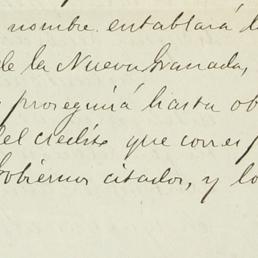 nombre entablará l
de la Nueva Granada,
proseguirá hasta ob
del credito que corres
Gobiernos citados, y lo